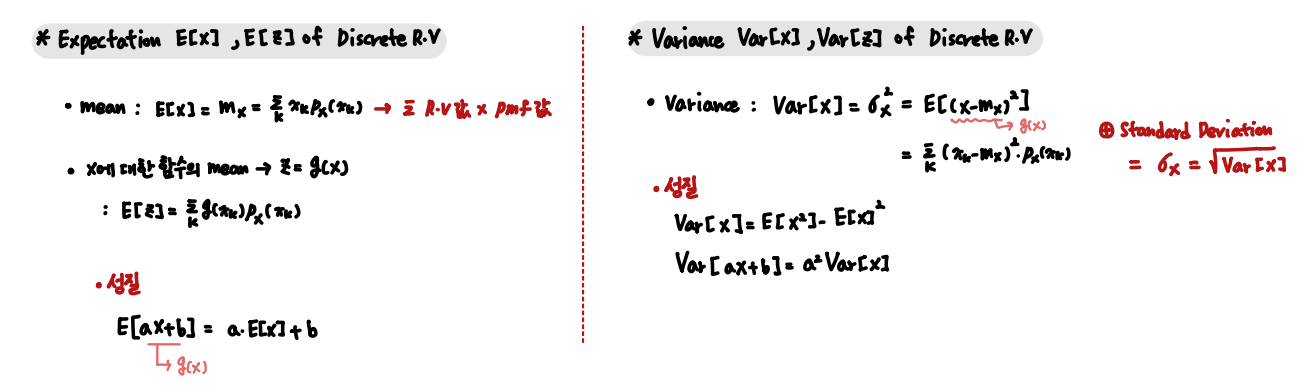 * Expectation E[X], E[Z] of Discrete R.V
• mean : E[X] = m_X = Σ_k x_k p_X(x_k) → Σ R.V값 × pmf값
• X에 대한 함수의 mean → Z = g(X)
: E[Z] = Σ_k g(x_k) p_X(x_k)
• 성질
E[aX+b] = a·E[X] + b
↳ g(X)
* Variance Var[X], Var[Z] of Discrete R.V
• Variance : Var[X] = σ_X² = E[(X-m_X)²]
↳ g(X)
= Σ_k (x_k-m_X)²·p_X(x_k)
⊕ Standard Deviation
= σ_X = √Var[X]
• 성질
Var[X] = E[X²] - E[X]²
Var[aX+b] = a² Var[X]